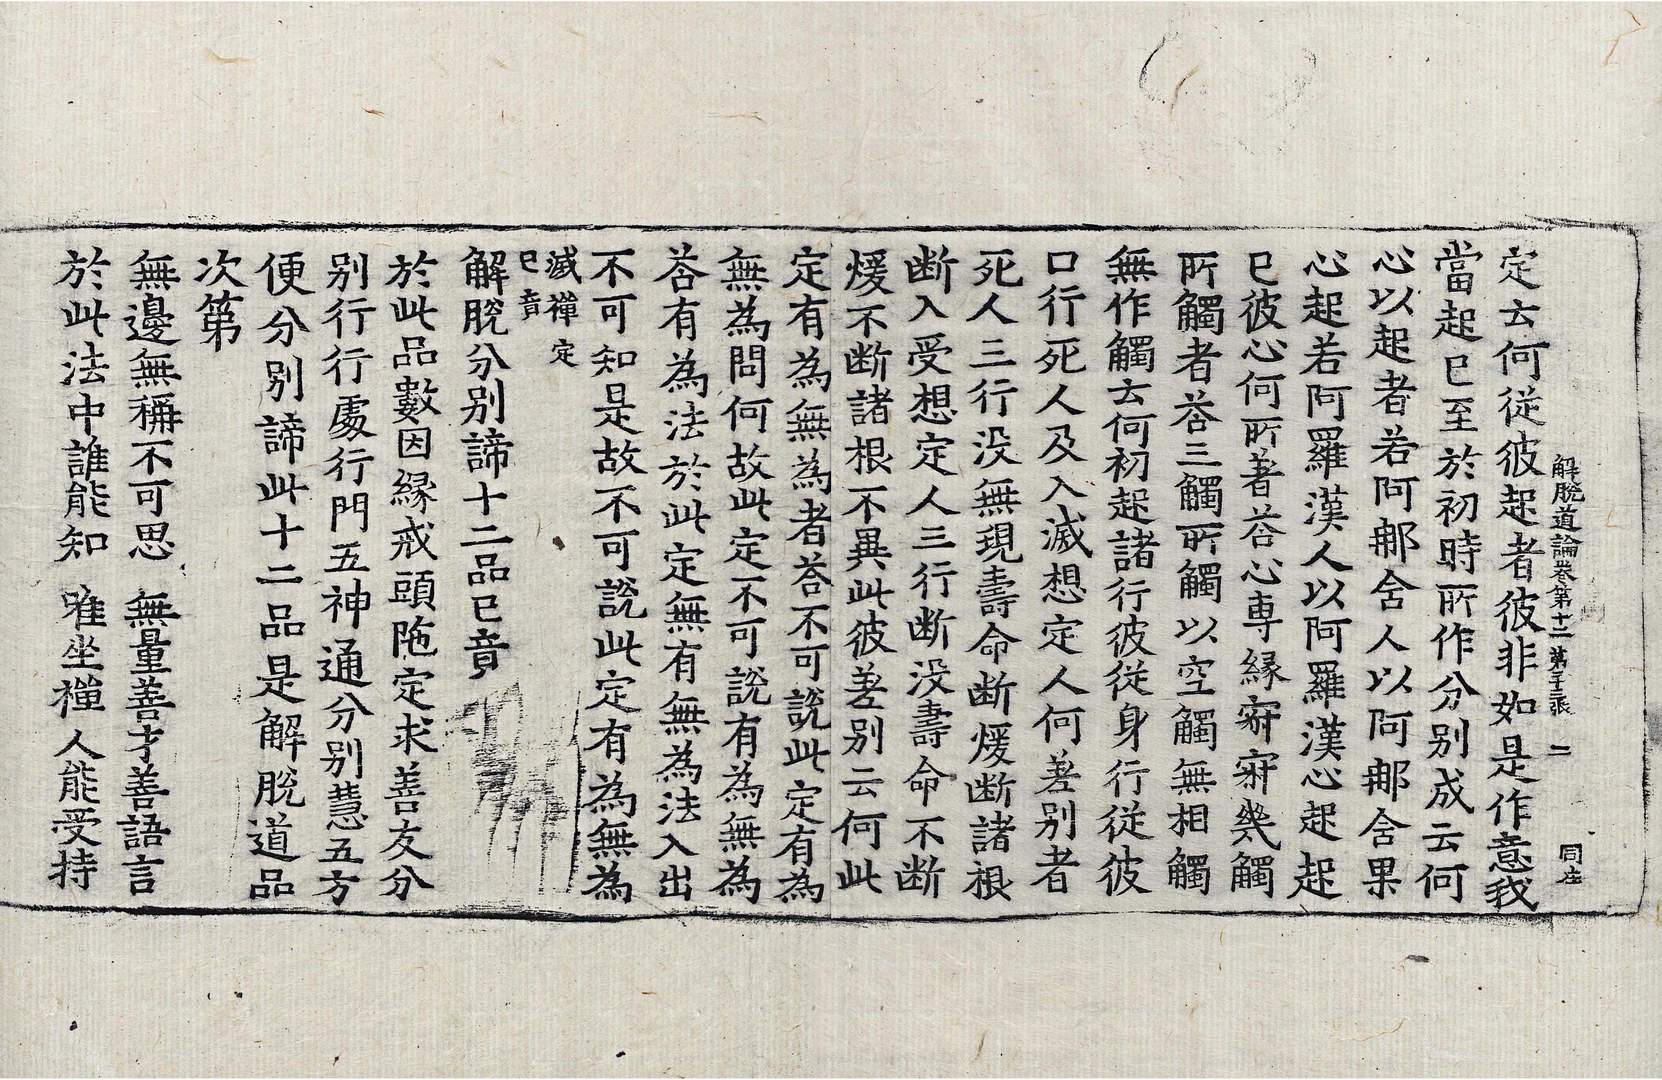 解脫道論卷第十二 第十三張 二 同庄
定云何從彼起者彼非如是作意我
當起已至於初時所作分別成云何
心以起者若阿那舍人以阿那舍果
心起若阿羅漢人以阿羅漢心起起
已彼心何所著答心專緣寂寂幾觸
所觸者答三觸所觸以空觸無相觸
無作觸云何初起諸行彼從身行從彼
口行死人及入滅想定人何差別者
死人三行没無現壽命断煖断諸根
断入受想定人三行断没壽命不断
煖不断諸根不異此彼差別云何此
定有為無為者答不可説此定有為
無為問何故此定不可説有為無為
答有為法於此定無有無為法入出
不可知是故不可説此定有為無為
滅禪定
已竟
解脫分別諦十二品已竟
於此品數因緣戒頭陁定求善友分
別行行處行門五神通分別慧五方
便分別諦此十二品是解脫道品
次第
無邊無稱不可思 無量善才善語言
於此法中誰能知 唯坐禪人能受持